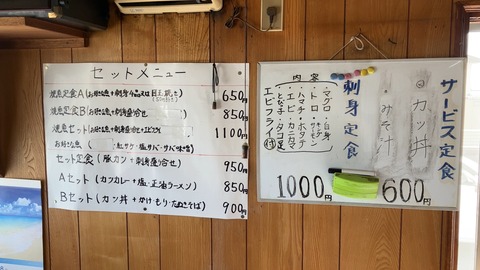 セットメニュー
焼魚定食A(お好な魚+刺身
650円
焼魚定食B(お好な魚+刺身盛合せ
850円
焼魚セット(お好な魚+刺身盛合せ+エビフライ
1100円
お好な魚
紅サケ・塩サバ・サバ味噌
セット定食(豚カツ+刺身盛合せ)
950円
Aセット(カツカレー+塩・正油ラーメン)
850円
Bセット(カツ丼+かけ・もり・たぬきそば)
900円
サービス定食
◎カツ丼
・みそ汁
600円
刺身定食
内容
・マグロ・白身
・トロ・サーモン
・ハマチ・ホタテ
・エビ・カニカマ
・とな子・タコ足
エビフライ付
1000円